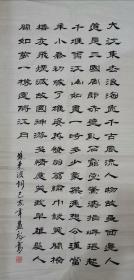 大江東去浪淘盡千古風流人物故壘西邊人
道是三國周郎赤壁亂石穿空驚濤拍岸捲起
千堆雪江山如畫一時多少豪傑遙想公瑾當
年小喬初嫁了雄姿英發羽扇綸巾談笑間
檣櫓灰飛煙滅故國神遊多情應笑我早生華髮人
如夢一尊還酹江月
蘇東坡詞己亥年